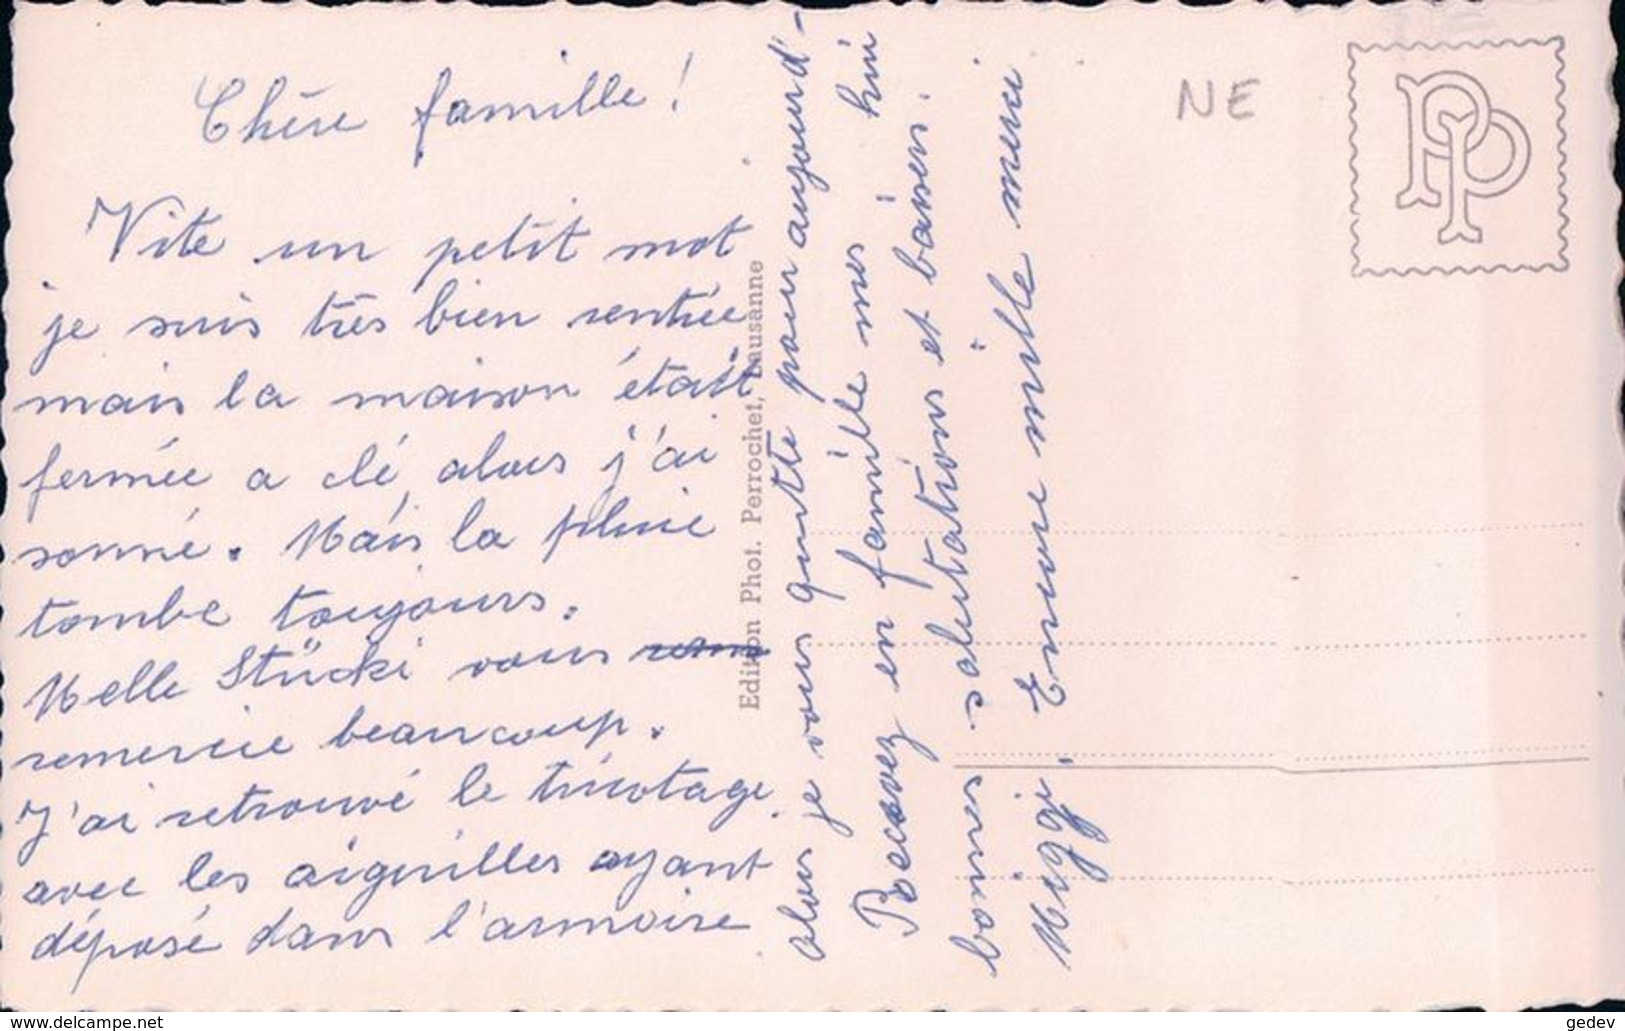 Chère famille !
Vite un petit mot
je suis très bien rentrée
mais la maison était
fermée a clé, alors j'ai
sonné. Mais la pluie
tombe toujours.
Melle Stücki vous
remercie beaucoup.
J'ai retrouvé le tricotage
avec les aiguilles ayant
déposé dans l'armoire
alors je vous quitte pour aujourd'-
hui
Recevez en famille mes
bonnes salutations et baisers.
Miggi. Encore mille merci
Edition Phot. Perrochet, Lausanne
NE
PP
delcampe.net
gedev